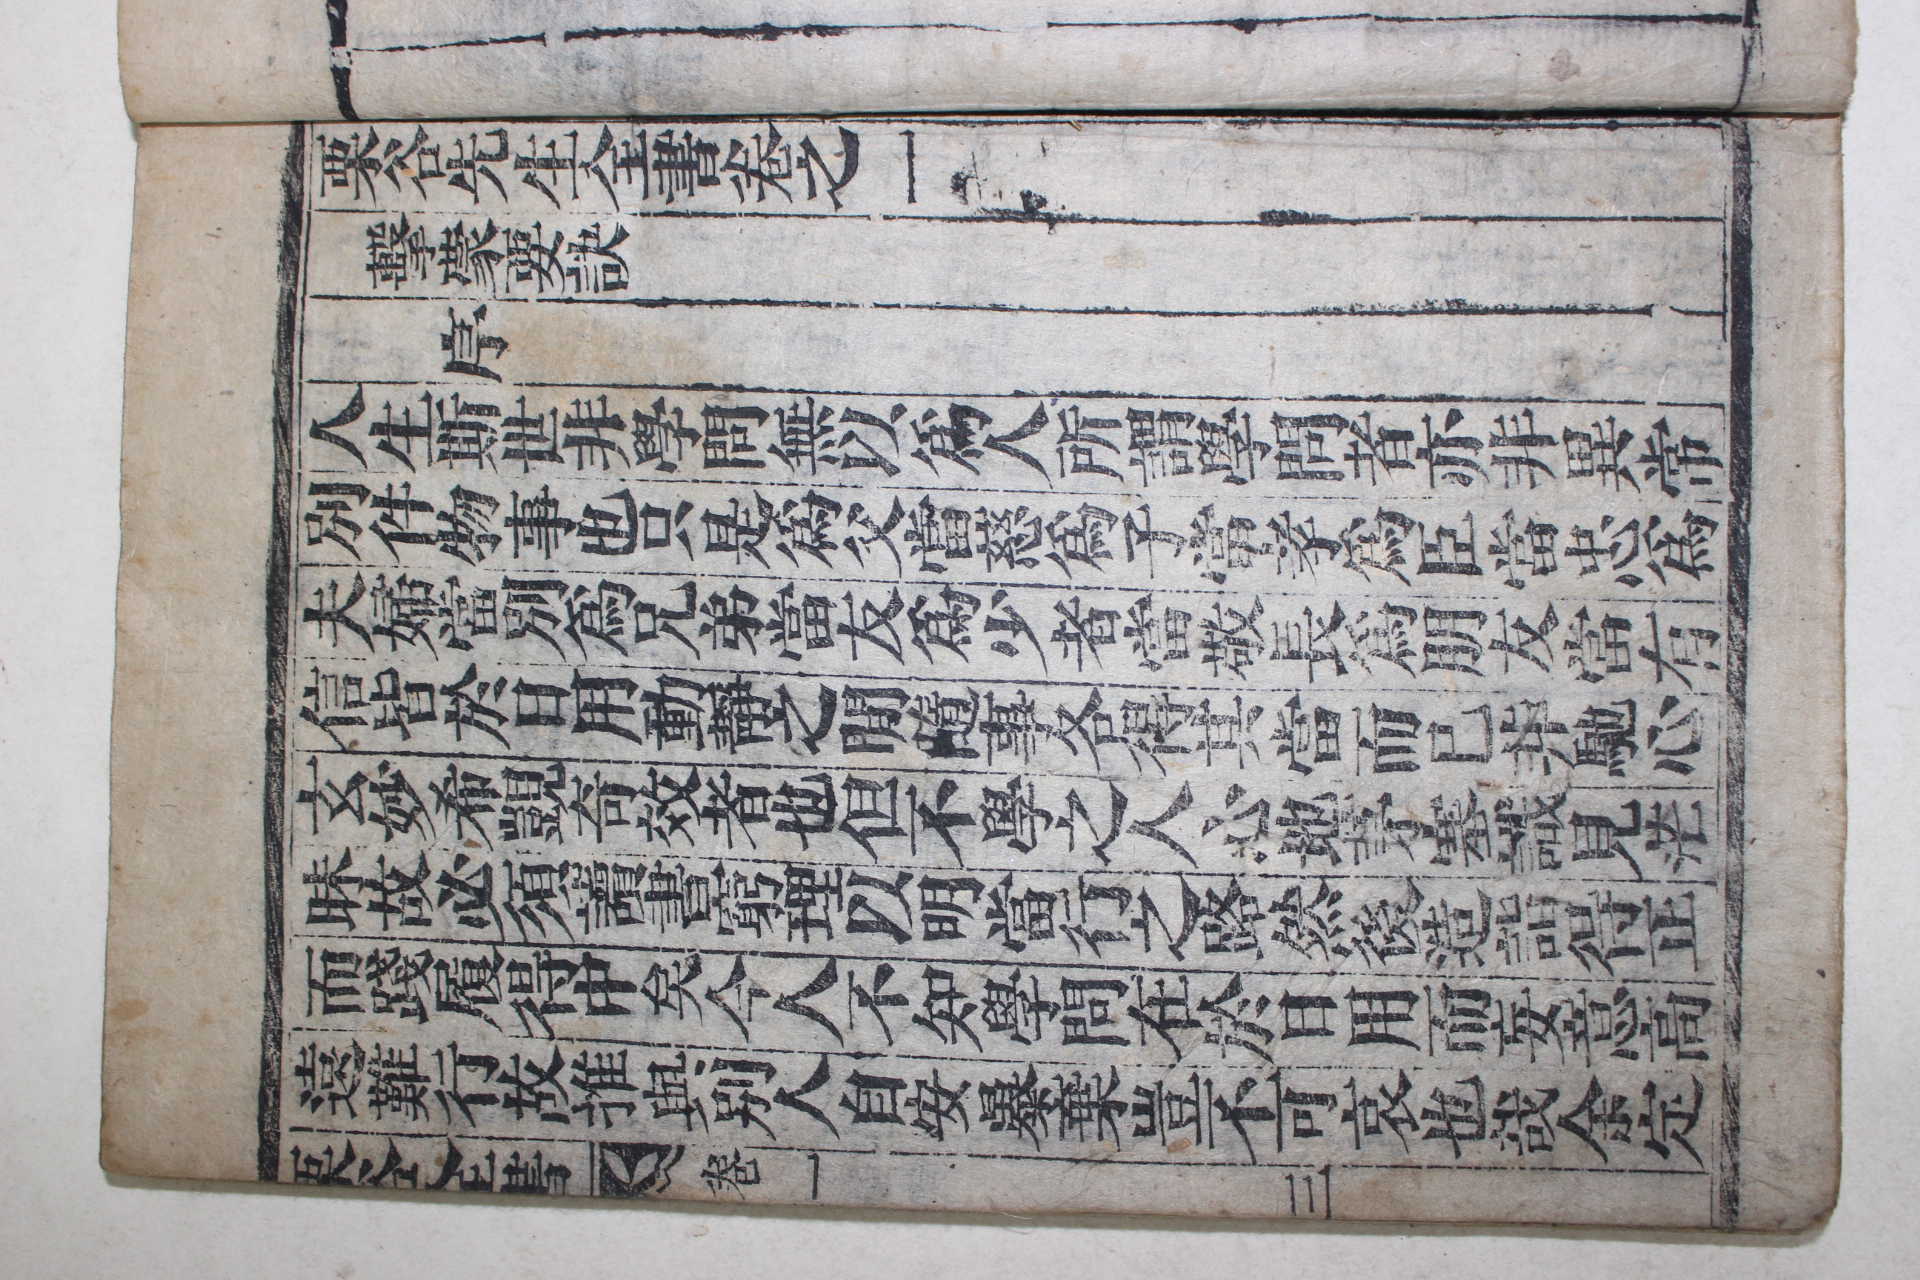 栗谷先生全書卷之一
擊蒙要訣
序
人生斯世非學問無以爲人所謂學問者亦非異常
別件物事也只是爲父當慈爲子當孝爲臣當忠爲
夫婦當別爲兄弟當友爲少者當敬長爲朋友當有
信皆於日用動靜之閒隨事各得其當而已非馳心
玄妙希覬奇效者也但不學之人心地茅塞識見茫
昧故必須讀書窮理以明當行之路然後造詣得正
而踐履得中矣今人不知學問在於日用而妄意高
遠難行故推與別人自安暴棄豈不可哀也哉余定
栗谷全書 卷一 三